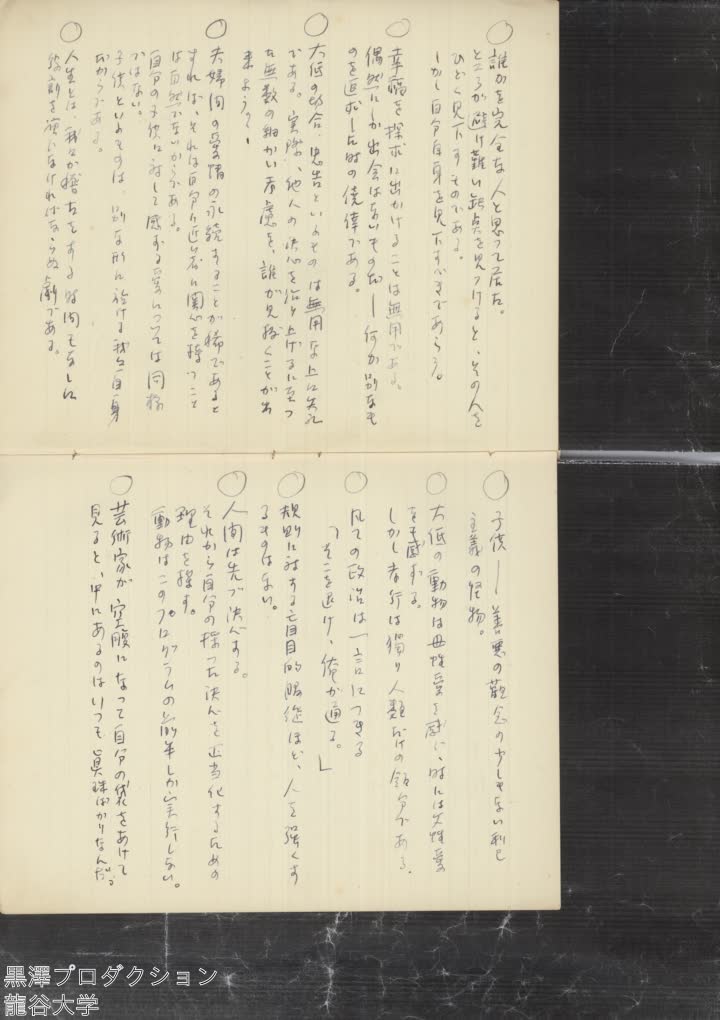 ○
誰かを完全な人と思って居た。
ところが避け難い欠点を見つけると、その人を
ひどく見下すものである。
しかし自分自身を見下すべきであらう。
○
幸福を探求に出かけることは無用である。
偶然にしか出会はないものだ―何か別なも
のを追求した時の僥倖である。
○
大低の場合、忠告といふものは無用な上に失礼
である。実際、他人の決心を作り上げるに至つ
た無数の細かい考慮を、誰が見抜くことが出
来よう？
○
夫婦間の愛情の永続することが稀であると
すれば、それは自分に近い者に関心を持つこと
は自然でないからである。
自分の子供に対して感ずる愛については同様
ではない。
子供といふものは、別な形に於ける我々自身
だからである。
○
人生とは、我々が稽古をする時間もなしに
役割を演じなければならぬ劇である。
○
子供―善悪の観念の少しもない利己
主義の怪物。
○
大低の動物は母性愛を感じ、時には父性愛
をも感ずる。
しかし孝行は獨り人類だけの領分である。
○
凡ての政治は一言につきる
「そこを退け、俺が通る。」
○
規則に対する盲目的服従ほど、人を強くす
るものはない。
○
人間は先づ決心する。
それから自分の採った決心を正当化するための
理由を探す。
動物はこのプログラムの前半しか実行しない。
○
芸術家が空腹になって自分の袋をあけて
見ると、中にあるのはいつも真珠ばかりなんだ。
黒澤プロダクション
龍谷大学